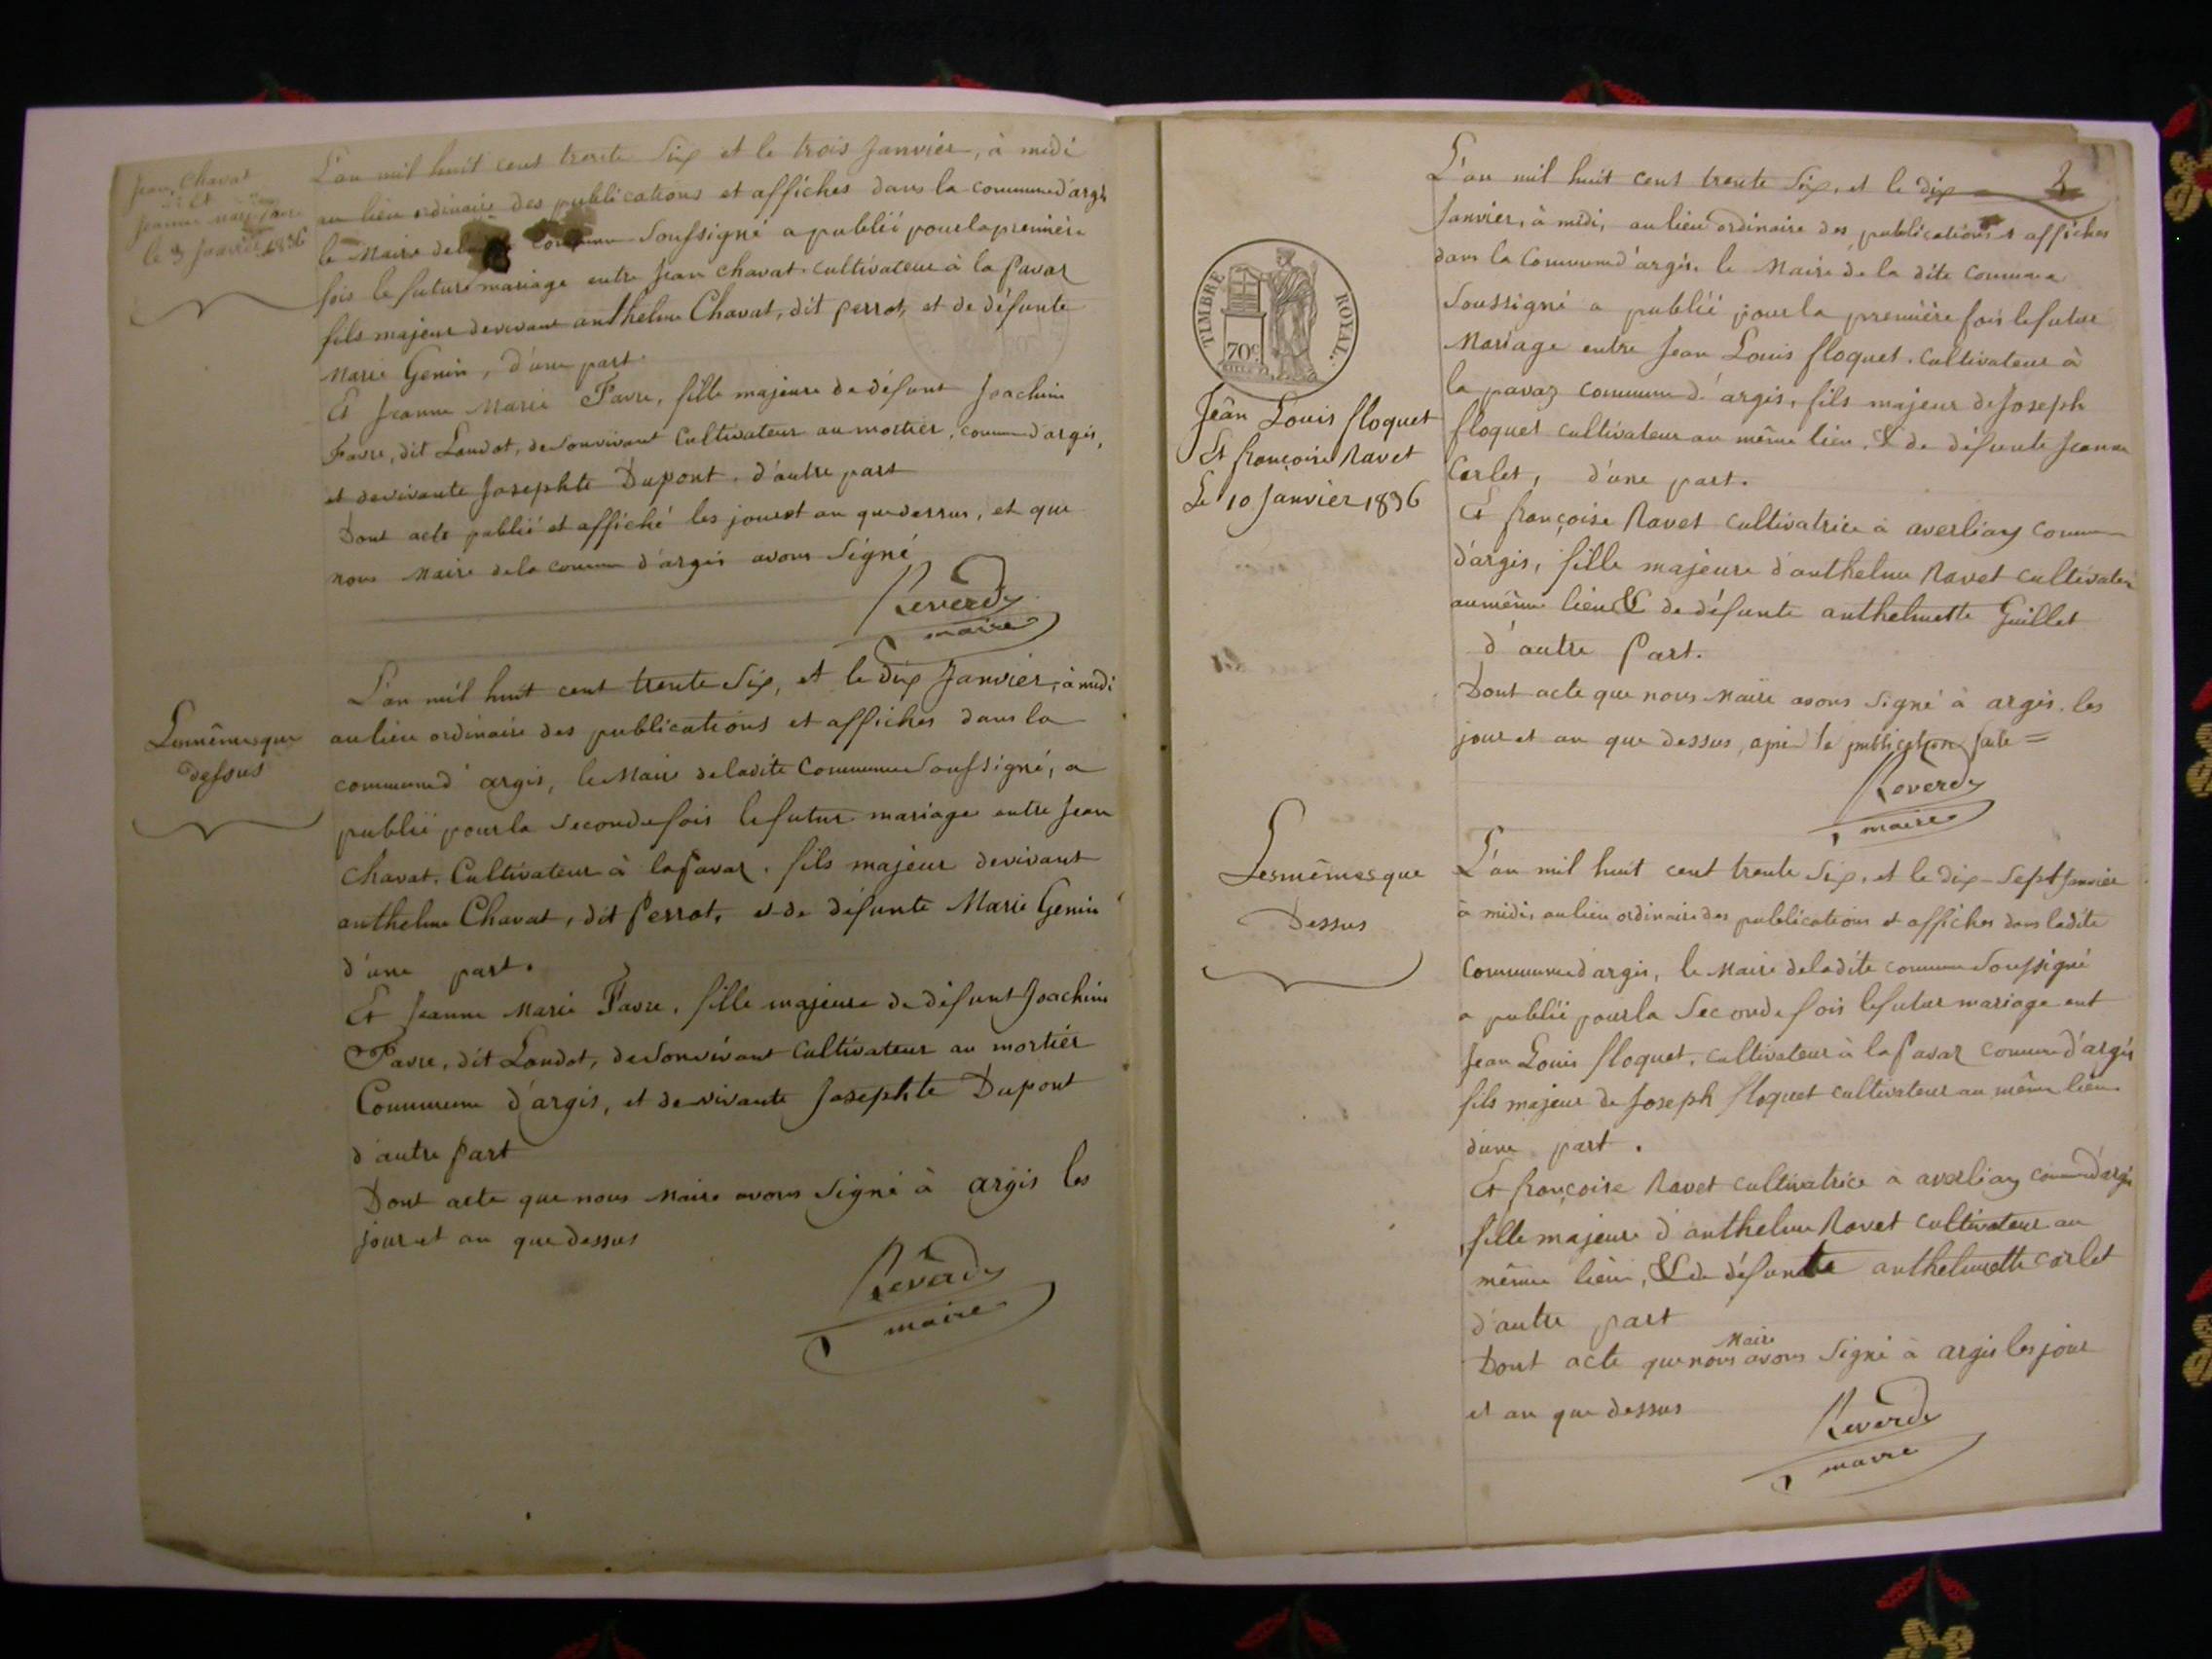 Jean Chavat
et
Jeanne Marie Favre
le 3 Janvier 1836
L'an mil huit cent trente Six et le trois Janvier, à midi
au lieu ordinaire des publications et affiches dans la commune d'argis
le Maire de la commune Soussigné a publié pour la première
fois le futur mariage entre Jean Chavat cultivateur à la Pavaz
fils majeur de vivant anthelme Chavat, dit perrot, et de défunte
Marie Genin, d'une part.
Et Jeanne Marie Favre, fille majeure de défunt Joachim
Favre, dit Loudot, de Son vivant Cultivateur au mortier, commune d'argis,
et de vivante Josephte Dupont. d'autre part
Dont acte publié et affiché les jour et an que dessus, et que
nous Maire de la commune d'argis avons Signé
Reverdy
maire
Les mêmes que
dessus
L'an mil huit cent trente Six, et le dix Janvier, à midi
au lieu ordinaire des publications et affiches dans la
commune d'argis, le Maire de ladite Commune Soussigné, a
publié pour la Seconde fois le futur mariage entre Jean
Chavat. Cultivateur à la Pavaz. fils majeur de vivant
anthelme Chavat, dit Perrot, et de défunte Marie Genin
d'une part.
Et Jeanne Marie Favre, fille majeure de défunt Joachim
Favre, dit Loudot, de Son vivant Cultivateur au mortier
Commune d'argis, et de vivante Josephte Dupont
d'autre Part
Dont acte que nous Maire avons Signé à argis les
jour et an que dessus
Reverdy
maire
2
TIMBRE ROYAL.
70c
Jean Louis floquet
Et françoise Ravet
Le 10 Janvier 1836
L'an mil huit cent trente Six, et le dix
Janvier, à midi, au lieu ordinaire des publications & affiches
dans la Commune d'argis, le Maire de la dite Commune
Soussigné a publié pour la première fois le futur
Mariage entre Jean Louis floquet. Cultivateur à
la pavaz commune d'argis, fils majeur de Joseph
floquet cultivateur au même lieu, & de défunte Jeanne
Carlet, d'une part.
Et françoise Ravet cultivatrice à averliaz commune
d'argis, fille majeure d'anthelme Ravet cultivateur
au même lieu & de défunte anthelmette Guillet
d'autre Part.
Dont acte que nous Maire avons Signé à argis. les
jour et an que dessus, après la publication faite =
Reverdy
maire
Les mêmes que
Dessus
L'an mil huit cent trente Six, et le dix-Sept Janvier
à midi, au lieu ordinaire des publications et affiches dans ladite
Commune d'argis, le Maire de ladite commune Soussigné
a publié pour la Seconde fois le futur mariage ent
Jean Louis floquet, cultivateur à la Pavaz Commune d'argis
fils majeur de Joseph floquet cultivateur au même lieu
d'une part.
Et françoise Ravet cultivatrice à averliaz commune d'argis
fille majeure d'anthelme Ravet cultivateur au
même lieu, & de défunte anthelmette Carlet
d'autre part
Maire
Dont acte que nous avons Signé à argis les jour
et an que dessus
Reverdy
maire